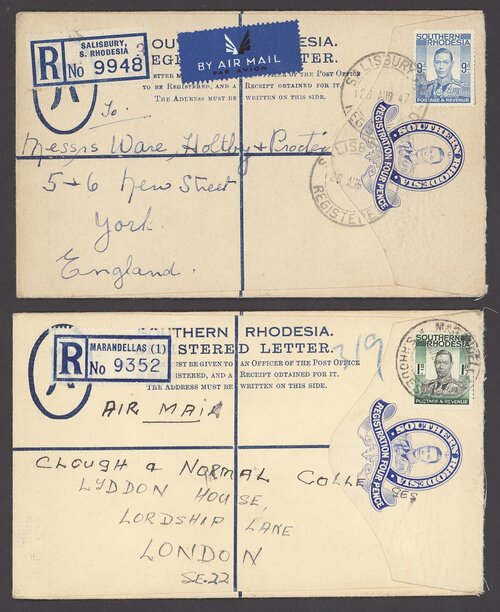 SALISBURY,
S. RHODESIA
R No 9948
BY AIR MAIL
PAR AVION
RHODESIA.
LETTER.
OFFICER OF THE POST OFFICE
TO BE REGISTERED, AND A RECEIPT OBTAINED FOR IT.
THE ADDRESS MUST BE WRITTEN ON THIS SIDE.
SOUTHERN
RHODESIA
9D 9D
POSTAGE & REVENUE
SALISBURY
SOUTHERN RHODESIA
REGISTRATION FOUR PENCE
To.
Messrs Ware, Holtby & Procter
5 & 6 New Street
York.
England.
SOUTHERN RHODESIA.
MARANDELLAS (1)
R No 9352
STERED LETTER.
MUST BE GIVEN TO AN OFFICER OF THE POST OFFICE
ISTERED, AND A RECEIPT OBTAINED FOR IT.
THE ADDRESS MUST BE WRITTEN ON THIS SIDE.
319
SOUTHERN
RHODESIA
1D 1D
POSTAGE & REVENUE
SOUTHERN RHODESIA
REGISTRATION FOUR PENCE
AIR MAIL
CLOUGH & NORMAL COLLEGES
LYDDON HOUSE,
LORDSHIP LANE
LONDON
S.E.22